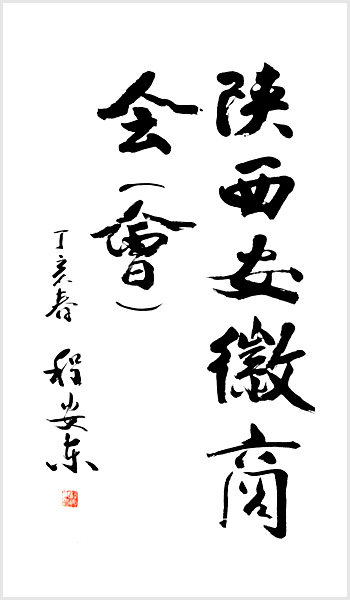 陕西安徽商
会（會）
丁亥春
程安东